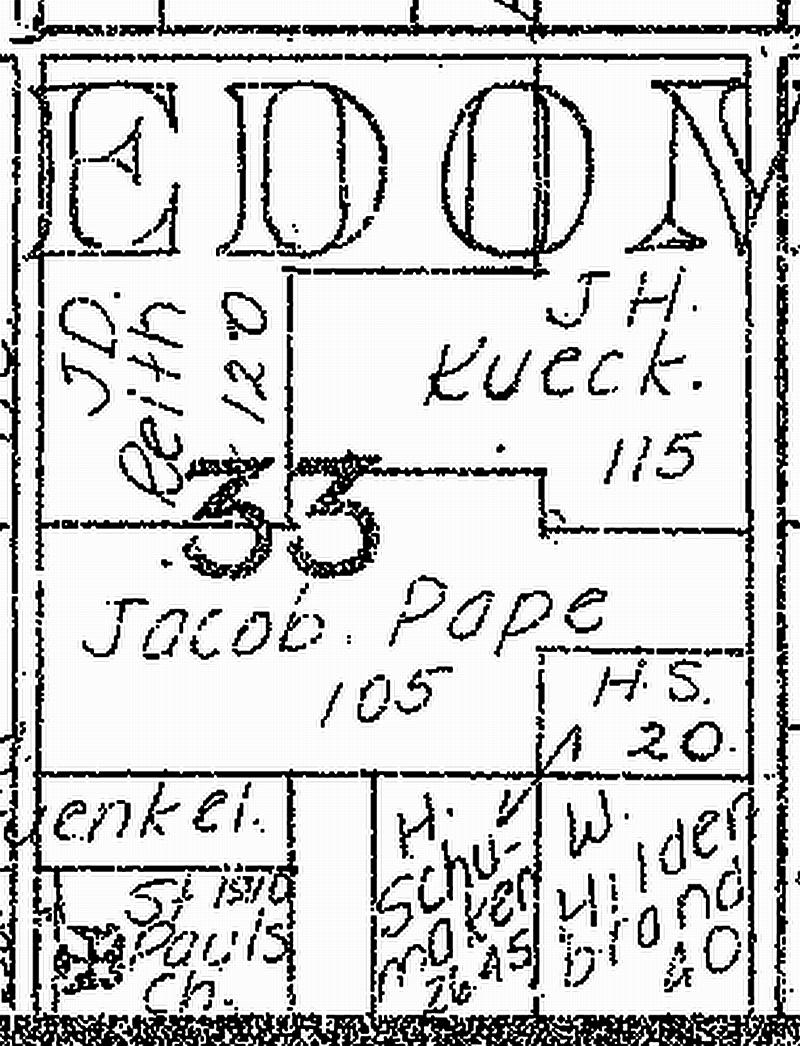 EDOM
J.D.
Reith
120
J H.
Kueck.
115
33
Jacob. Pape
105
H.S.
20.
enkel.
St
Pauls
Ch.
H.
Schu-
maker
W.
Hilder
brand
40